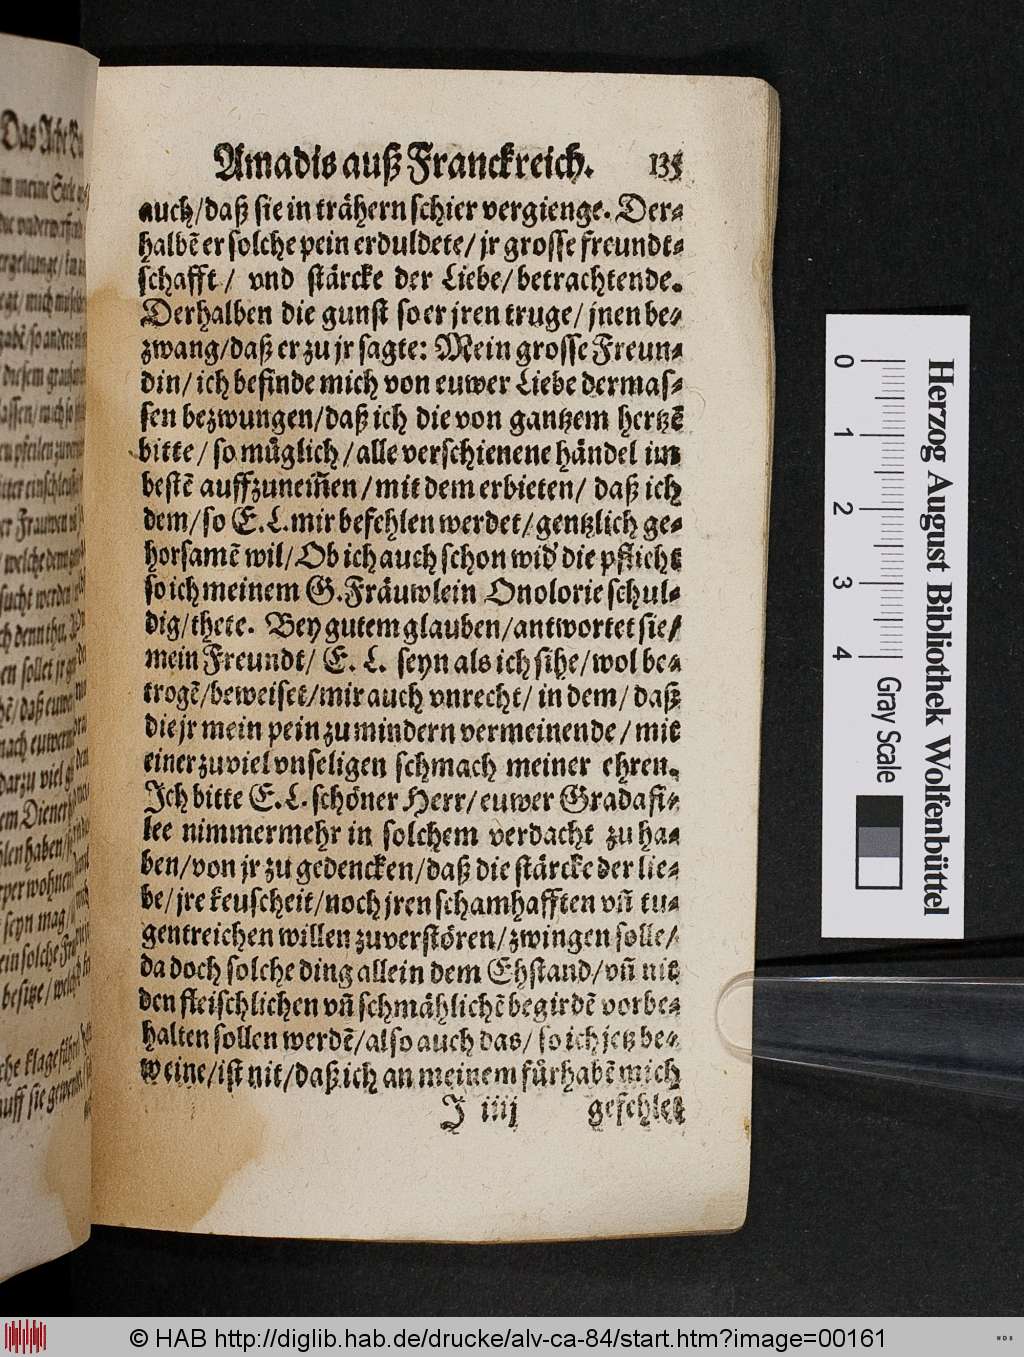 Amadis auß Franckreich. 135
auch/daß sie in trähern schier vergienge. Der-
halbẽ er solche pein erduldete/ jr grosse freundt-
schafft/ vnd stärcke der Liebe/ betrachtende.
Derhalben die gunst so er jren truge/ jnen be-
zwang/daß er zu jr sagte: Mein grosse Freun-
din/ ich befinde mich von euwer Liebe dermas-
sen bezwungen/daß ich die von gantzem hertzẽ
bitte/ so müglich/ alle verschienene händel im
bestẽ auffzunem̃en/ mit dem erbieten/ daß ich
dem/ so E. L. mir befehlen werdet/ gentzlich ge-
horsamẽ wil/ Ob ich auch schon wid' die pflicht
so ich meinem G. Fräuwlein Onolorie schul-
dig/ thete. Bey gutem glauben/antwortet sie/
mein Freundt/ E. L. seyn als ich sihe/ wol be-
trogẽ/beweiset/mir auch vnrecht/ in dem/ daß
die jr mein pein zu mindern vermeinende/ mit
einer zuviel vnseligen schmach meiner ehren.
Ich bitte E. L. schöner Herr/ euwer Gradafi-
lee nimmermehr in solchem verdacht zu ha-
ben/von jr zu gedencken/daß die stärcke der lie-
be/ jre keuscheit/noch jren schamhafften vñ tu-
gentreichen willen zuverstören/zwingen solle/
da doch solche ding allein dem Ehstand/vñ nit
den fleischlichen vñ schmählichẽ begirdẽ vorbe-
halten sollen werdẽ/also auch das/ so ich jetz be-
weine/ist nit/daß ich an meinem fürhabẽ mich
J iiij gefehlet
Herzog August Bibliothek Wolfenbüttel
0 1 2 3 4
Gray Scale
© HAB http://diglib.hab.de/drucke/alv-ca-84/start.htm?image=00161